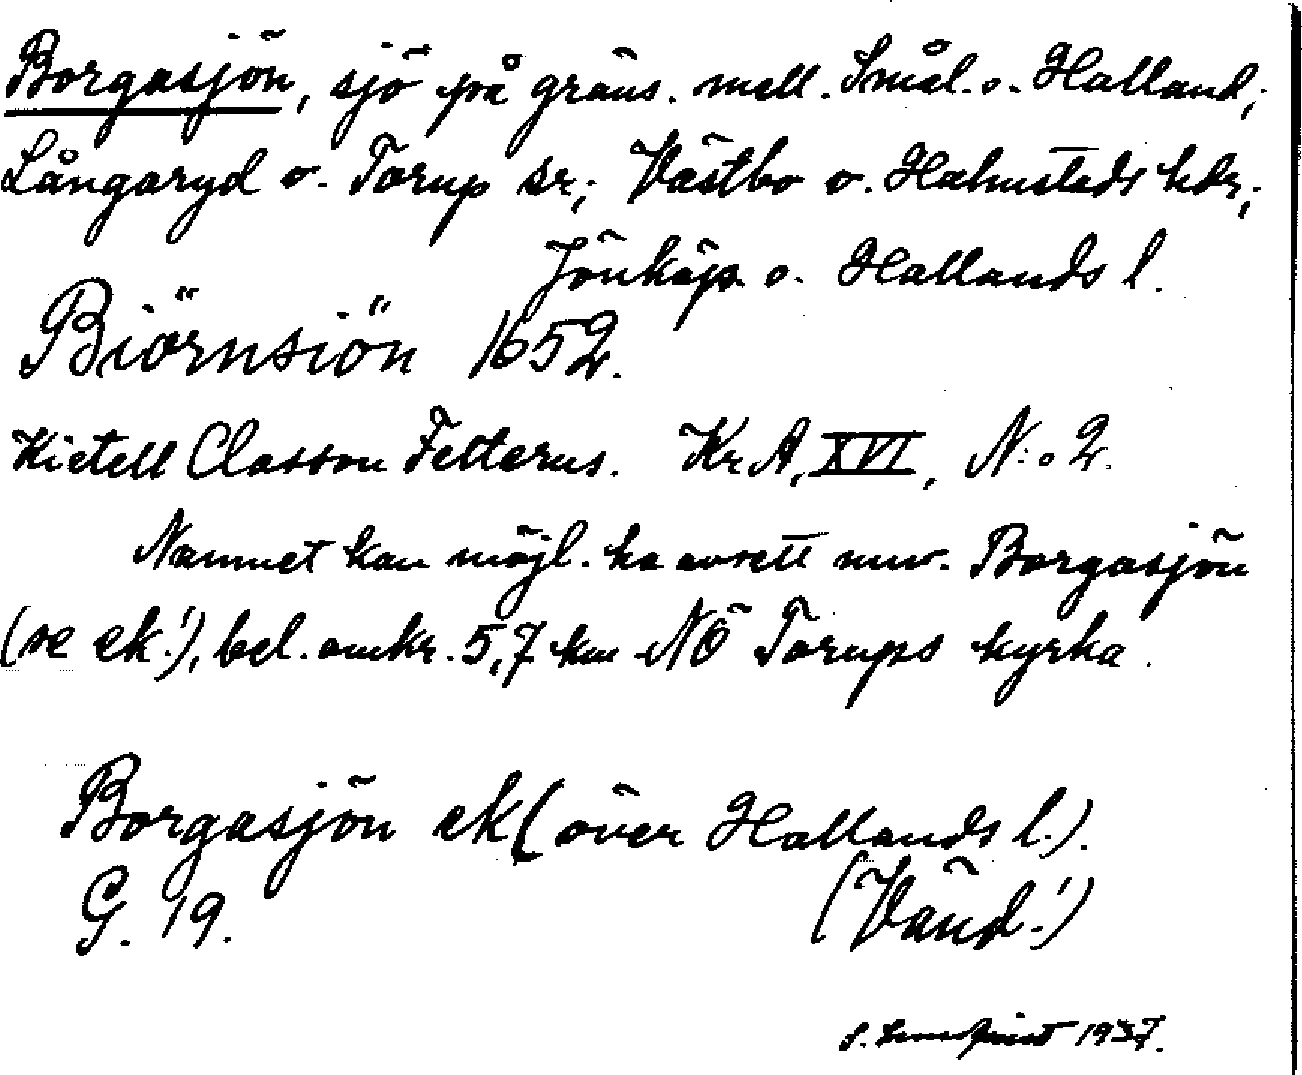 Borgasjön, sjö på gräns. mell. Smål. o. Halland;
Långaryd o. Torup sr; Västbo o. Halmstads hdr;
Jönköp. o. Hallands l.
Biörnsiön 1652.
Kietell Classon Felterus. KrA, XVI, N:o 2.
Namnet kan möjl. ha avsett nuv. Borgasjön
(se ek.!), bel. omkr. 5,7 km NÖ Torups kyrka.
Borgasjön ek (över Hallands l.).
G. 19. (Vänd!)
S. 1937.